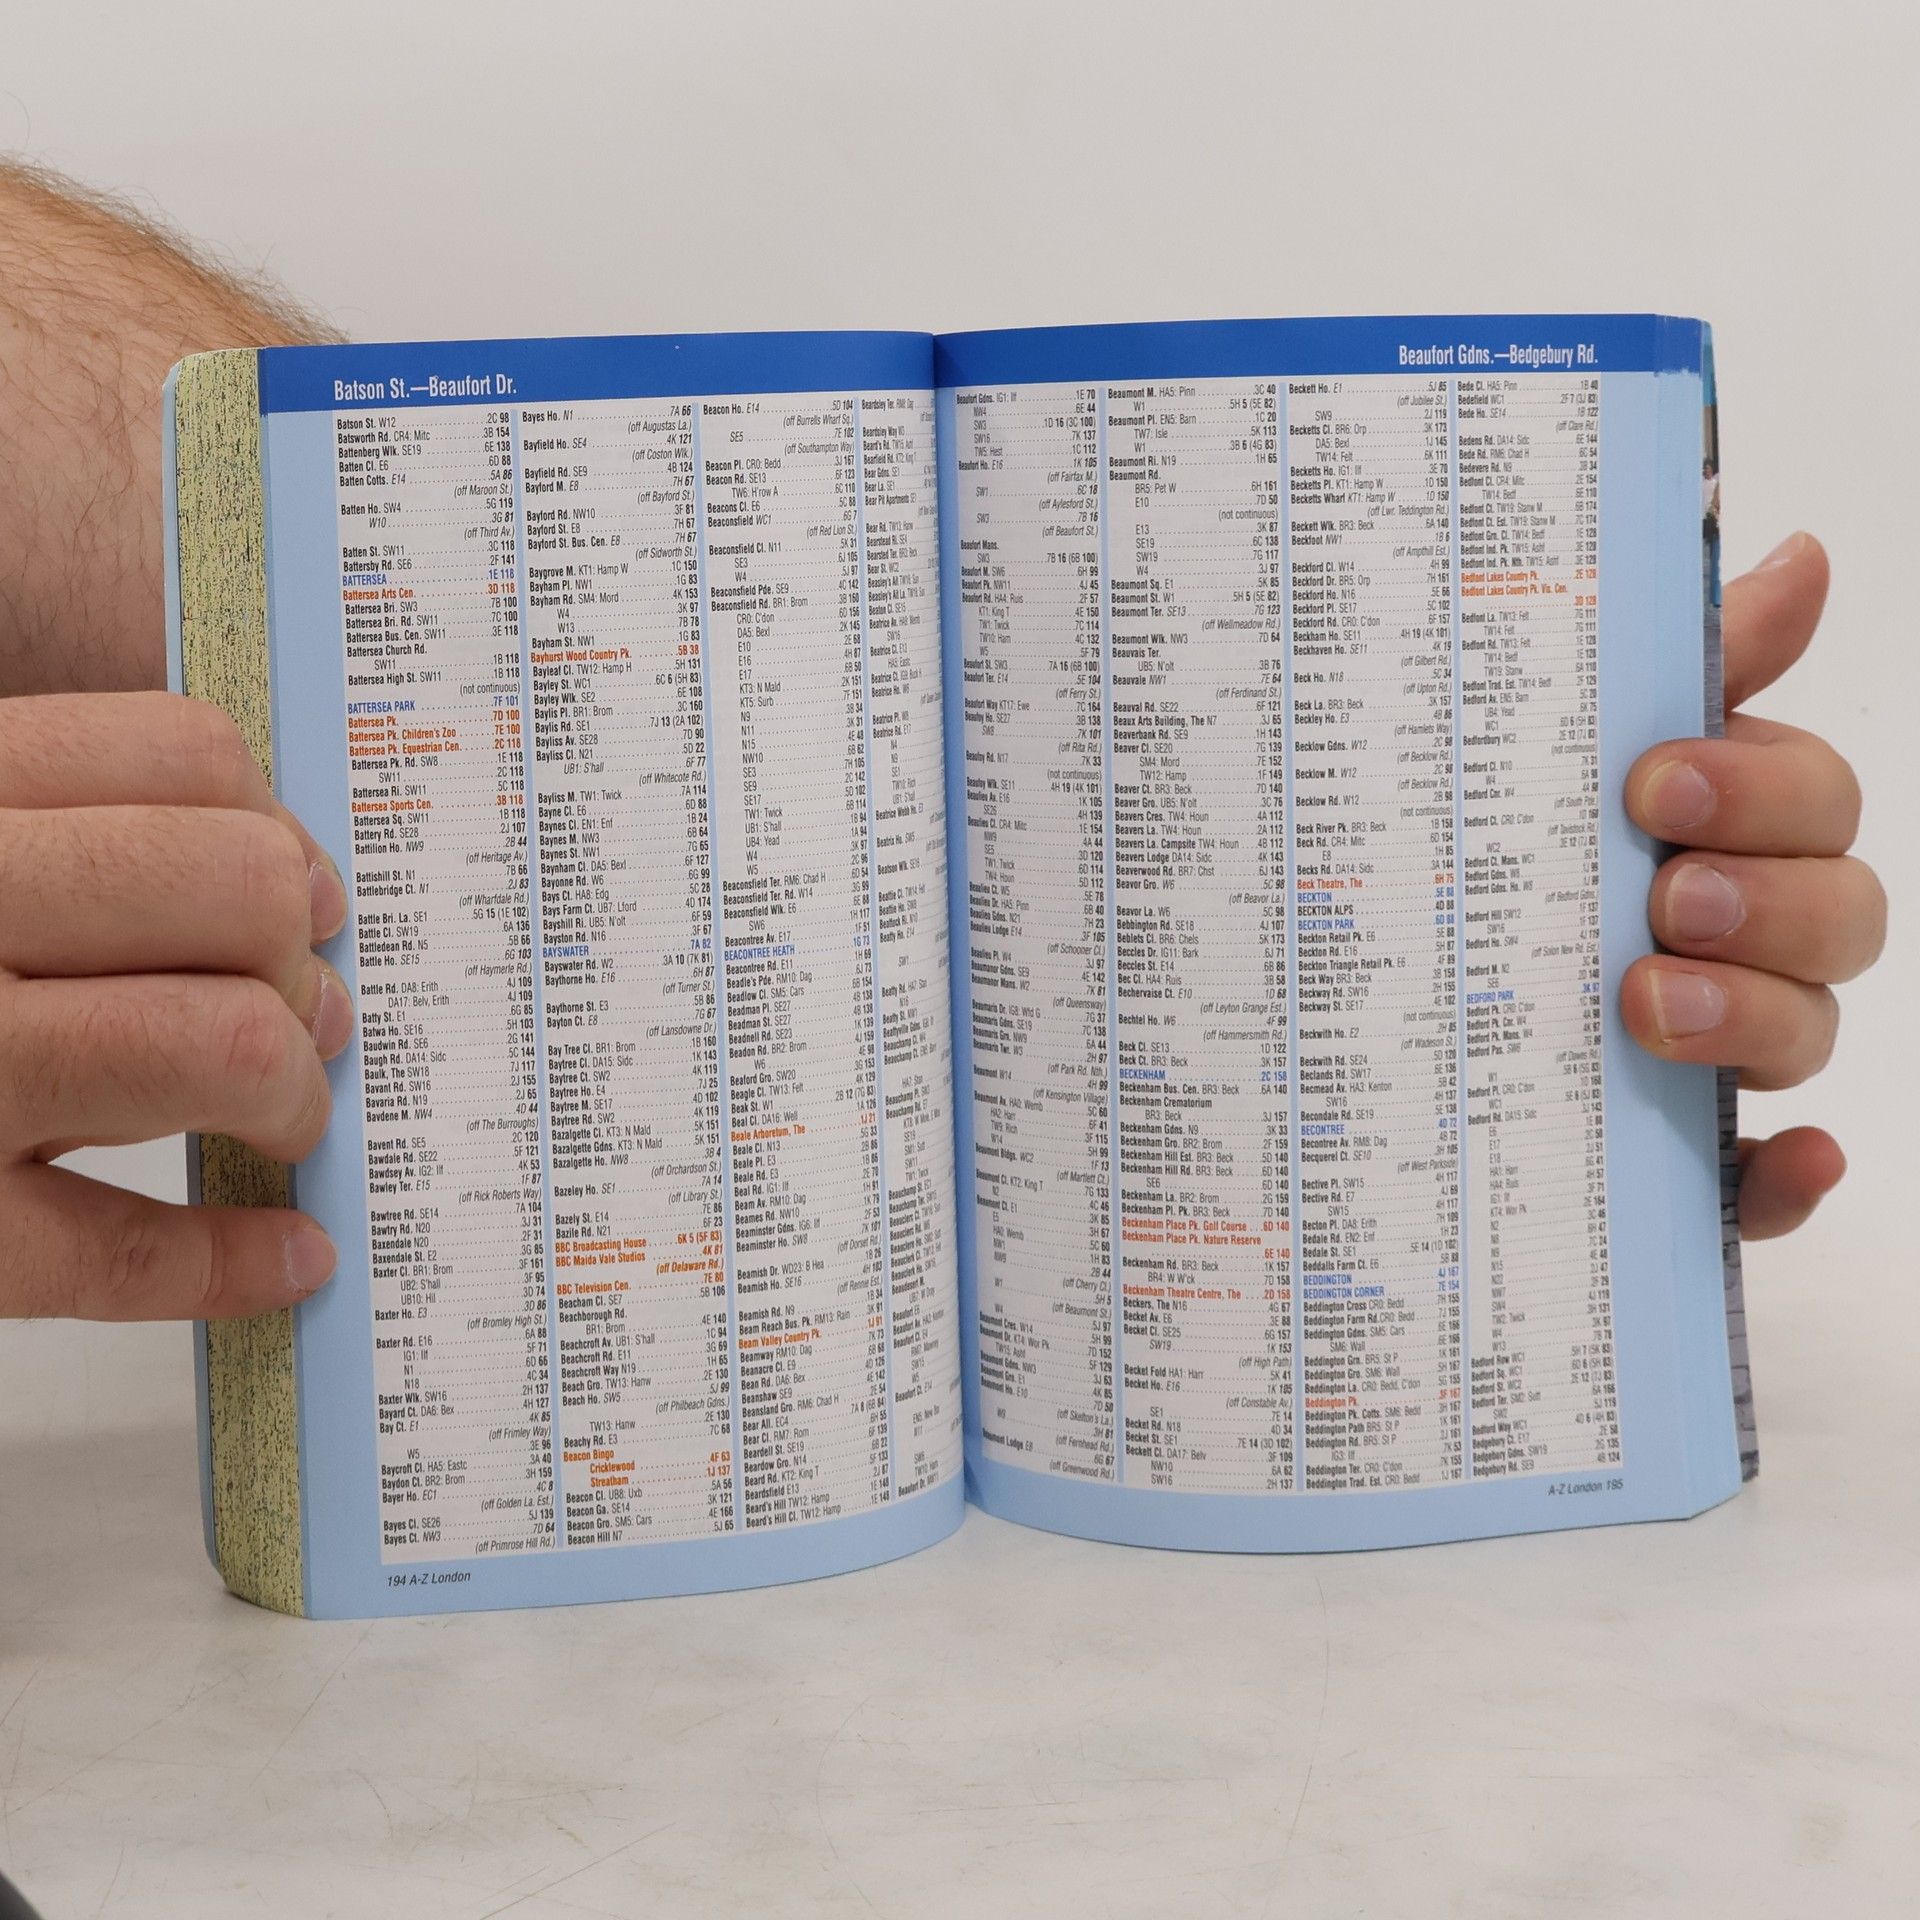 Batson St.—Beaufort Dr.
Batson St. W12 2C 98
Batsworth Rd. CR4: Mitc 3B 154
Battenberg Wlk. SE19 6E 138
Batten Cl. E6 6D 88
Batten Cotts. E14 5A 86
(off Maroon St.)
Batten Ho. SW4 5G 119
W10 3G 81
(off Third Av.)
Batten St. SW11 3C 118
Battersby Rd. SE6 2F 141
BATTERSEA 1E 118
Battersea Arts Cen. 3D 118
Battersea Bri. SW3 7B 100
Battersea Bri. Rd. SW11 7C 100
Battersea Bus. Cen. SW11 3E 118
Battersea Church Rd.
SW11 1B 118
Battersea High St. SW11 1B 118
(not continuous)
BATTERSEA PARK 7F 101
Battersea Pk. 7D 100
Battersea Pk. Children's Zoo 7E 100
Battersea Pk. Equestrian Cen. 2C 118
Battersea Pk. Rd. SW8 1E 118
SW11 2C 118
Battersea Ri. SW11 5C 118
Battersea Sports Cen. 3B 118
Battersea Sq. SW11 1B 118
Battery Rd. SE28 2J 107
Battilion Ho. NW9 2B 44
(off Heritage Av.)
Battishill St. N1 7B 66
Battlebridge Ct. N1 2J 83
(off Wharfdale Rd.)
Battle Bri. La. SE1 5G 15 (1E 102)
Battle Cl. SW19 6A 136
Battledean Rd. N5 5B 66
Battle Ho. SE15 6G 103
(off Haymerle Rd.)
Battle Rd. DA8: Erith 4J 109
DA17: Belv, Erith 4J 109
Batty St. E1 6G 85
Batwa Ho. SE16 5H 103
Baudwin Rd. SE6 2G 141
Baugh Rd. DA14: Sidc 5C 144
Baulk, The SW18 7J 117
Bavant Rd. SW16 2J 155
Bavaria Rd. N19 2J 65
Bavdene M. NW4 4D 44
(off The Burroughs)
Bavent Rd. SE5 2C 120
Bawdale Rd. SE22 5F 121
Bawdsey Av. IG2: Ilf 4K 53
Bawley Ter. E15 1F 87
(off Rick Roberts Way)
Bawtree Rd. SE14 7A 104
Bawtry Rd. N20 3J 31
Baxendale N20 2F 31
Baxendale St. E2 3G 85
Baxter Cl. BR1: Brom 3F 161
UB2: S'hall 3F 95
UB10: Hil 3D 74
Baxter Ho. E3 3D 86
(off Bromley High St.)
Baxter Rd. E16 6A 88
IG1: Ilf 5F 71
N1 6D 66
N18 4C 34
Baxter Wlk. SW16 2H 137
Bayard Ct. DA6: Bex 4H 127
Bay Ct. E1 4K 85
(off Frimley Way)
W5 3E 96
Baycroft Cl. HA5: Eastc 3A 40
Baydon Ct. BR2: Brom 3H 159
Bayer Ho. EC1 4C 8
(off Golden La. Est.)
Bayes Cl. SE26 5J 139
Bayes Ct. NW3 7D 64
(off Primrose Hill Rd.)
Bayes Ho. N1 7A 66
(off Augustas La.)
Bayfield Ho. SE4 4K 121
(off Coston Wlk.)
Bayfield Rd. SE9 4B 124
Bayford M. E8 7H 67
(off Bayford St.)
Bayford Rd. NW10 3F 81
Bayford St. E8 7H 67
Bayford St. Bus. Cen. E8 7H 67
(off Sidworth St.)
Baygrove M. KT1: Hamp W 1C 150
Bayham Pl. NW1 1G 83
Bayham Rd. SM4: Mord 4K 153
W4 3K 97
W13 7B 78
Bayham St. NW1 1G 83
Bayhurst Wood Country Pk. 5B 38
Bayleaf Cl. TW12: Hamp H 5H 131
Bayley St. WC1 6C 6 (5H 83)
Bayley Wlk. SE2 6E 108
Baylis Pl. BR1: Brom 3C 160
Baylis Rd. SE1 7J 13 (2A 102)
Bayliss Av. SE28 7D 90
Bayliss Cl. N21 5D 22
UB1: S'hall 6F 77
(off Whitecote Rd.)
Bayliss M. TW1: Twick 7A 114
Bayne Cl. E6 6D 88
Baynes Cl. EN1: Enf 1B 24
Baynes M. NW3 6B 64
Baynes St. NW1 7G 65
Baynham Cl. DA5: Bexl 6F 127
Bayonne Rd. W6 6G 99
Bays Ct. HA8: Edg 5C 28
Bays Farm Ct. UB7: Lford 4D 174
Bayshill Ri. UB5: N'olt 6F 59
Bayston Rd. N16 3F 67
BAYSWATER 7A 82
Bayswater Rd. W2 3A 10 (7K 81)
Baythorne Ho. E16 6H 87
(off Turner St.)
Baythorne St. E3 5B 86
Bayton Ct. E8 7G 67
(off Lansdowne Dr.)
Bay Tree Cl. BR1: Brom 1B 160
Baytree Cl. DA15: Sidc 1K 143
Baytree Ct. SW2 4K 119
Baytree Ho. E4 7J 25
Baytree M. SE17 4D 102
Baytree Rd. SW2 4K 119
Bazalgette Cl. KT3: N Mald 5K 151
Bazalgette Gdns. KT3: N Mald 5K 151
Bazalgette Ho. NW8 3B 4
(off Orchardson St.)
Bazeley Ho. SE1 7A 14
(off Library St.)
Bazely St. E14 7E 86
Bazile Rd. N21 6F 23
BBC Broadcasting House 6K 5 (5F 83)
BBC Maida Vale Studios 4K 81
(off Delaware Rd.)
BBC Television Cen. 7E 80
Beacham Cl. SE7 5B 106
Beachborough Rd.
BR1: Brom 4E 140
Beachcroft Av. UB1: S'hall 1C 94
Beachcroft Rd. E11 3G 69
Beachcroft Way N19 1H 65
Beach Gro. TW13: Hanw 2E 130
Beach Ho. SW5 5J 99
(off Philbeach Gdns.)
TW13: Hanw 2E 130
Beachy Rd. E3 7C 68
Beacon Bingo
Cricklewood 4F 63
Streatham 1J 137
Beacon Cl. UB8: Uxb 5A 56
Beacon Ga. SE14 3K 121
Beacon Gro. SM5: Cars 4E 166
Beacon Hill N7 5J 65
Beacon Ho. E14 5D 104
(off Burrells Wharf Sq.)
SE5 7E 102
(off Southampton Way)
Beacon Pl. CR0: Bedd 3J 167
Beacon Rd. SE13 6F 123
TW6: H'row A 6C 110
Beacons Cl. E6 5C 88
Beaconsfield WC1 6G 7
(off Red Lion St.)
Beaconsfield Cl. N11 5K 31
SE3 6J 105
W4 5J 97
Beaconsfield Pde. SE9 4C 142
Beaconsfield Rd. BR1: Brom 3B 160
CR0: C'don 6D 156
DA5: Bexl 2K 145
E10 2E 68
E16 4H 87
E17 6B 50
KT3: N Mald 2K 151
KT5: Surb 7F 151
N9 3B 34
N11 3K 31
N15 4E 48
NW10 6B 62
SE3 7H 105
SE9 2C 142
SE17 5D 102
TW1: Twick 6B 114
UB1: S'hall 1B 94
UB4: Yead 1A 94
W4 3K 97
W5 2C 96
Beaconsfield Ter. RM6: Chad H 6D 54
Beaconsfield Ter. Rd. W14 3G 99
Beaconsfield Wlk. E6 6E 88
SW6 1H 117
Beacontree Av. E17 1F 51
BEACONTREE HEATH 1G 73
Beacontree Rd. E11 1H 69
Beadle's Pde. RM10: Dag 6J 73
Beadlow Cl. SM5: Cars 6B 154
Beadman Pl. SE27 4B 138
Beadman St. SE27 4B 138
Beadnell Rd. SE23 1K 139
Beadon Rd. BR2: Brom 4J 159
W6 4E 98
Beaford Gro. SW20 3G 153
Beagle Cl. TW13: Felt 4K 129
Beak St. W1 2B 12 (7G 83)
Beal Cl. DA16: Well 1A 126
Beale Arboretum, The 1J 21
Beale Cl. N13 5G 33
Beale Pl. E3 2B 86
Beale Rd. E3 1B 86
Beal Rd. IG1: Ilf 2E 70
Beam Av. RM10: Dag 1H 91
Beames Rd. NW10 1K 79
Beaminster Gdns. IG6: Ilf 2F 53
Beaminster Ho. SW8 7K 101
(off Dorset Rd.)
Beamish Dr. WD23: B Hea 1B 26
Beamish Ho. SE16 4H 103
(off Rennie Est.)
Beamish Rd. N9 1B 34
Beam Reach Bus. Pk. RM13: Rain 3K 91
Beam Valley Country Pk. 1J 91
Beamway RM10: Dag 7K 73
Beanacre Cl. E9 6B 68
Bean Rd. DA6: Bex 4D 126
Beanshaw SE9 4E 142
Beansland Gro. RM6: Chad H 2E 54
Bear All. EC4 7A 8 (6B 84)
Bear Cl. RM7: Rom 6H 55
Beardell St. SE19 6F 139
Beardow Gro. N14 6B 22
Beard Rd. KT2: King T 5F 133
Beardsfield E13 2J 87
Beard's Hill TW12: Hamp 1E 148
Beard's Hill Cl. TW12: Hamp 1E 148
194 A-Z London
Beaufort Gdns.—Bedgebury Rd.
Beaufort Gdns. IG1: Ilf 1E 70
NW4 6E 44
SW3 1D 16 (3C 100)
SW16 7K 137
TW5: Hest 1C 112
Beaufort Ho. E16 1K 105
(off Fairfax M.)
SW1 6C 18
(off Aylesford St.)
SW3 7B 16
(off Beaufort St.)
Beaufort Mans.
SW3 7B 16 (6B 100)
Beaufort M. SW6 6H 99
Beaufort Pk. NW11 4J 45
Beaufort Rd. HA4: Ruis 2F 57
KT1: King T 4E 150
TW1: Twick 7C 114
TW10: Ham 4C 132
W5 5F 79
Beaufort St. SW3 7A 16 (6B 100)
Beaufort Ter. E14 5E 104
(off Ferry St.)
Beaufort Way KT17: Ewe 7C 164
Beaufoy Ho. SE27 3B 138
SW8 7K 101
(off Rita Rd.)
Beaufoy Rd. N17 7K 33
(not continuous)
Beaufoy Wlk. SE11 4H 19 (4K 101)
Beaulieu Av. E16 1K 105
SE26 4H 139
Beaulieu Cl. CR4: Mitc 1E 154
NW9 4A 44
SE5 3D 120
TW1: Twick 6D 114
TW4: Houn 5D 112
Beaulieu Ct. W5 5E 78
Beaulieu Dr. HA5: Pinn 6B 40
Beaulieu Gdns. N21 7H 23
Beaulieu Lodge E14 3F 105
(off Schooner Cl.)
Beaulieu Pl. W4 3J 97
Beaumanor Gdns. SE9 4E 142
Beaumanor Mans. W2 7K 81
(off Queensway)
Beaumaris Dr. IG8: Wfd G 7G 37
Beaumaris Gdns. SE19 7C 138
Beaumaris Grn. NW9 6A 44
Beaumaris Twr. W3 2H 97
(off Park Rd. Nth.)
Beaumont W14 4H 99
(off Kensington Village)
Beaumont Av. HA0: Wemb 5C 60
HA2: Harr 6F 41
TW9: Rich 3F 115
W14 5H 99
Beaumont Bldgs. WC2 1F 13
(off Martlett Ct.)
Beaumont Cl. KT2: King T 7G 133
N2 4C 46
Beaumont Ct. E1 3K 85
E5 3H 67
HA0: Wemb 5C 60
NW1 1H 83
NW9 2B 44
(off Cherry Cl.)
W1 5H 5
(off Beaumont St.)
W4 5J 97
Beaumont Cres. W14 5H 99
Beaumont Dr. KT4: Wor Pk 7D 152
TW15: Ashf 5F 129
Beaumont Gdns. NW3 3J 63
Beaumont Gro. E1 4K 85
Beaumont Ho. E10 7D 50
(off Skelton's La.)
W9 3H 81
(off Fernhead Rd.)
Beaumont Lodge E8 6G 67
(off Greenwood Rd.)
Beaumont M. HA5: Pinn 3C 40
W1 5H 5 (5E 82)
Beaumont Pl. EN5: Barn 1C 20
TW7: Isle 5K 113
W1 3B 6 (4G 83)
Beaumont Ri. N19 1H 65
Beaumont Rd.
BR5: Pet W 6H 161
E10 7D 50
(not continuous)
E13 3K 87
SE19 6C 138
SW19 7G 117
W4 3J 97
Beaumont Sq. E1 5K 85
Beaumont St. W1 5H 5 (5E 82)
Beaumont Ter. SE13 7G 123
(off Wellmeadow Rd.)
Beaumont Wlk. NW3 7D 64
Beauvais Ter.
UB5: N'olt 3B 76
Beauvale NW1 7E 64
(off Ferdinand St.)
Beauval Rd. SE22 6F 121
Beaux Arts Building, The N7 3J 65
Beaverbank Rd. SE9 1H 143
Beaver Cl. SE20 7G 139
SM4: Mord 7E 152
TW12: Hamp 1F 149
Beaver Ct. BR3: Beck 7D 140
Beaver Gro. UB5: N'olt 3C 76
Beavers Cres. TW4: Houn 4A 112
Beavers La. TW4: Houn 2A 112
Beavers La. Campsite TW4: Houn 4B 112
Beavers Lodge DA14: Sidc 4K 143
Beaverwood Rd. BR7: Chst 6J 143
Beavor Gro. W6 5C 98
(off Beavor La.)
Beavor La. W6 5C 98
Bebbington Rd. SE18 4J 107
Beblets Cl. BR6: Chels 5K 173
Beccles Dr. IG11: Bark 6J 71
Beccles St. E14 6B 86
Bec Cl. HA4: Ruis 3B 58
Bechervaise Ct. E10 1D 68
(off Leyton Grange Est.)
Bechtel Ho. W6 4F 99
(off Hammersmith Rd.)
Beck Cl. SE13 1D 122
Beck Ct. BR3: Beck 3K 157
BECKENHAM 2C 158
Beckenham Bus. Cen. BR3: Beck 6A 140
Beckenham Crematorium
BR3: Beck 3J 157
Beckenham Gdns. N9 3K 33
Beckenham Gro. BR2: Brom 2F 159
Beckenham Hill Est. BR3: Beck 5D 140
Beckenham Hill Rd. BR3: Beck 6D 140
SE6 6D 140
Beckenham La. BR2: Brom 2G 159
Beckenham Pl. Pk. BR3: Beck 7D 140
Beckenham Place Pk. Golf Course 6D 140
Beckenham Place Pk. Nature Reserve
6E 140
Beckenham Rd. BR3: Beck 1K 157
BR4: W W'ck 7D 158
Beckenham Theatre Centre, The 2D 158
Beckers, The N16 4G 67
Becket Av. E6 3E 88
Becket Cl. SE25 6G 157
SW19 1K 153
(off High Path)
Becket Fold HA1: Harr 5K 41
Becket Ho. E16 1K 105
(off Constable Av.)
SE1 7E 14
Becket Rd. N18 4D 34
Becket St. SE1 7E 14 (3D 102)
Beckett Cl. DA17: Belv 3F 109
NW10 6A 62
SW16 2H 137
Beckett Ho. E1 5J 85
(off Jubilee St.)
SW9 2J 119
Becketts Cl. BR6: Orp 3K 173
DA5: Bexl 1J 145
TW14: Felt 6K 111
Becketts Ho. IG1: Ilf 3E 70
Becketts Pl. KT1: Hamp W 1D 150
Becketts Wharf KT1: Hamp W 1D 150
(off Lwr. Teddington Rd.)
Beckett Wlk. BR3: Beck 6A 140
Beckfoot NW1 1B 6
(off Ampthill Est.)
Beckford Cl. W14 4H 99
Beckford Dr. BR5: Orp 7H 161
Beckford Ho. N16 5E 66
Beckford Pl. SE17 5C 102
Beckford Rd. CR0: C'don 6F 157
Beckham Ho. SE11 4H 19 (4K 101)
Beckhaven Ho. SE11 4K 19
(off Gilbert Rd.)
Beck Ho. N18 5C 34
(off Upton Rd.)
Beck La. BR3: Beck 3K 157
Beckley Ho. E3 4B 86
(off Hamlets Way)
Becklow Gdns. W12 2C 98
(off Becklow Rd.)
Becklow M. W12 2C 98
(off Becklow Rd.)
Becklow Rd. W12 2B 98
(not continuous)
Beck River Pk. BR3: Beck 1B 158
Beck Rd. CR4: Mitc 6D 154
E8 1H 85
Becks Rd. DA14: Sidc 3A 144
Beck Theatre, The 6H 75
BECKTON 5E 88
BECKTON ALPS 4D 88
BECKTON PARK 6D 88
Beckton Retail Pk. E6 5E 88
Beckton Rd. E16 5H 87
Beckton Triangle Retail Pk. E6 4F 89
Beck Way BR3: Beck 3B 158
Beckway Rd. SW16 2H 155
Beckway St. SE17 4E 102
(not continuous)
Beckwith Ho. E2 2H 85
(off Wadeson St.)
Beckwith Rd. SE24 5D 120
Beclands Rd. SW17 6E 136
Becmead Av. HA3: Kenton 5B 42
SW16 4H 137
Becondale Rd. SE19 5E 138
BECONTREE 4D 72
Becontree Av. RM8: Dag 4B 72
Becquerel Ct. SE10 3H 105
(off West Parkside)
Bective Pl. SW15 4H 117
Bective Rd. E7 4J 69
SW15 4H 117
Becton Pl. DA8: Erith 7H 109
Bedale Rd. EN2: Enf 1H 23
Bedale St. SE1 5E 14 (1D 102)
Beddalls Farm Ct. E6 5B 88
BEDDINGTON 4J 167
BEDDINGTON CORNER 7E 154
Beddington Cross CR0: Bedd 7H 155
Beddington Farm Rd. CR0: Bedd 7J 155
Beddington Gdns. SM5: Cars 6E 166
SM6: Wall 6E 166
Beddington Grn. BR5: St P 1K 161
Beddington Gro. SM6: Wall 5H 167
Beddington La. CR0: Bedd, C'don 5G 155
Beddington Pk. 3F 167
Beddington Pk. Cotts. SM6: Bedd 3H 167
Beddington Path BR5: St P 1K 161
Beddington Rd. BR5: St P 1J 161
IG3: Ilf 7K 53
Beddington Ter. CR0: C'don 7K 155
Beddington Trad. Est. CR0: Bedd 1J 167
Bede Cl. HA5: Pinn 1B 40
Bedefield WC1 2F 7 (3J 83)
Bede Ho. SE14 1B 122
(off Clare Rd.)
Bedens Rd. DA14: Sidc 6E 144
Bede Rd. RM6: Chad H 6C 54
Bedevere Rd. N9 3B 34
Bedfont Cl. CR4: Mitc 2E 154
TW14: Bedf 6E 110
Bedfont Ct. TW19: Stanw M 6B 174
Bedfont Ct. Est. TW19: Stanw M 7C 174
Bedfont Grn. Cl. TW14: Bedf 1E 128
Bedfont Ind. Pk. TW15: Ashf 3E 128
Bedfont Ind. Pk. Nth. TW15: Ashf 3E 128
Bedfont Lakes Country Pk. 2E 128
Bedfont Lakes Country Pk. Vis. Cen.
3D 128
Bedfont La. TW13: Felt 7G 111
TW14: Felt 7G 111
Bedfont Rd. TW13: Felt 1E 128
TW14: Bedf 1E 128
TW19: Stanw 6A 110
Bedfont Trad. Est. TW14: Bedf 2F 129
Bedford Av. EN5: Barn 5C 20
UB4: Yead 6K 75
WC1 6D 6 (5H 83)
Bedfordbury WC2 2E 12 (7J 83)
(not continuous)
Bedford Cl. N10 7K 31
W4 6A 98
Bedford Cnr. W4 4A 98
(off South Pde.)
Bedford Ct. CR0: C'don 1D 168
(off Tavistock Rd.)
WC2 3E 12 (7J 83)
Bedford Ct. Mans. WC1 6D 6
Bedford Gdns. W8 1J 99
Bedford Gdns. Ho. W8 1J 99
(off Bedford Gdns.)
Bedford Hill SW12 1F 137
SW16 1F 137
Bedford Ho. SW4 4J 119
(off Solon New Rd. Est.)
Bedford M. N2 3C 46
SE6 2D 140
BEDFORD PARK 3K 97
Bedford Pk. CR0: C'don 1C 168
Bedford Pk. Cnr. W4 4A 98
Bedford Pk. Mans. W4 4K 97
Bedford Pas. SW6 7G 99
(off Dawes Rd.)
W1 5B 6 (5G 83)
Bedford Pl. CR0: C'don 1D 168
WC1 5E 6 (5J 83)
Bedford Rd. DA15: Sidc 3J 143
E6 1E 88
E17 2C 50
E18 2J 51
HA1: Harr 6G 41
HA4: Ruis 4H 57
IG1: Ilf 3F 71
KT4: Wor Pk 2E 164
N2 3C 46
N8 6H 47
N9 7C 24
N15 4E 48
N22 1J 47
NW7 2F 29
SW4 4J 119
TW2: Twick 3H 131
W4 3K 97
W13 7B 78
Bedford Row WC1 5H 7 (5K 83)
Bedford Sq. WC1 6D 6 (5H 83)
Bedford St. WC2 2E 12 (7J 83)
Bedford Ter. SM2: Sutt 6A 166
SW2 5J 119
Bedford Way WC1 4D 6 (4H 83)
Bedgebury Ct. E17 2E 50
Bedgebury Gdns. SW19 2G 135
Bedgebury Rd. SE9 4B 124
A-Z London 195